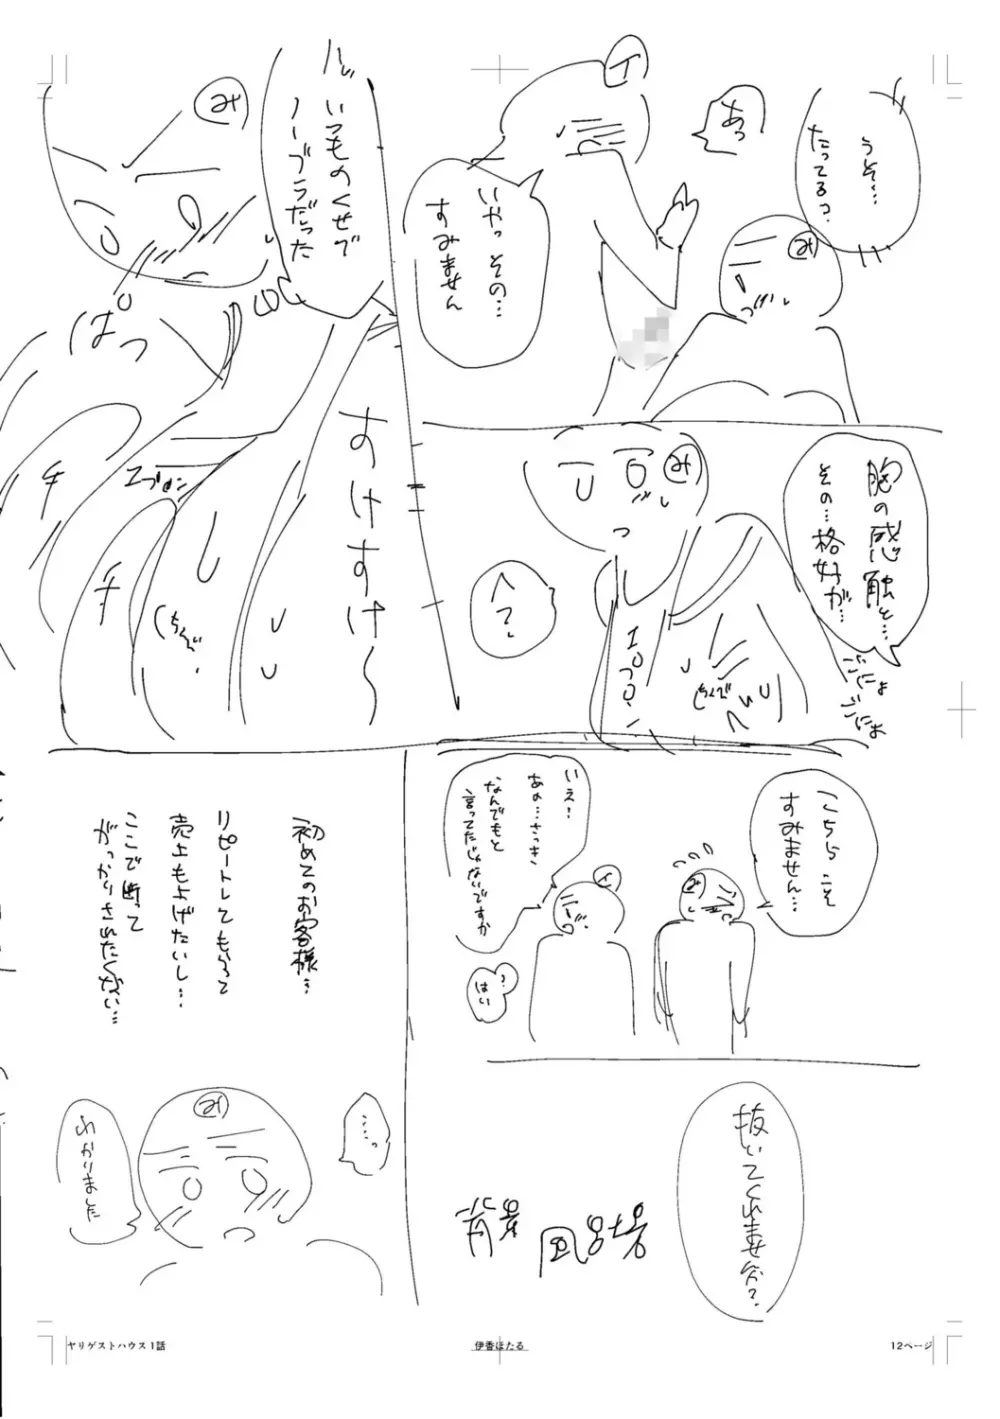 うそ…
たってるっ?
み
あっ
イ
いやっ その…
すみません
いつものくせで
ノーブラだった
み
はっ
すけすけ〜
エプロン
チ
チ
胸の感触と…
その…格好が…
ごにょ
ごにょ
み
へ?
エプロン
こちらこそ
すみません…
み
イ
いえ!
あの…さっき
なんでもと
言ってたじゃないですか
?
はい
抜いてくれませんか?
背景
風呂場
初めてのお客様…
リピートしてもらって
売上も上げたいし…
ここで断って
がっかりされたくない…
み
…っ
わかりました
ヤリゲストハウス1話
伊香ほたる
12ページ